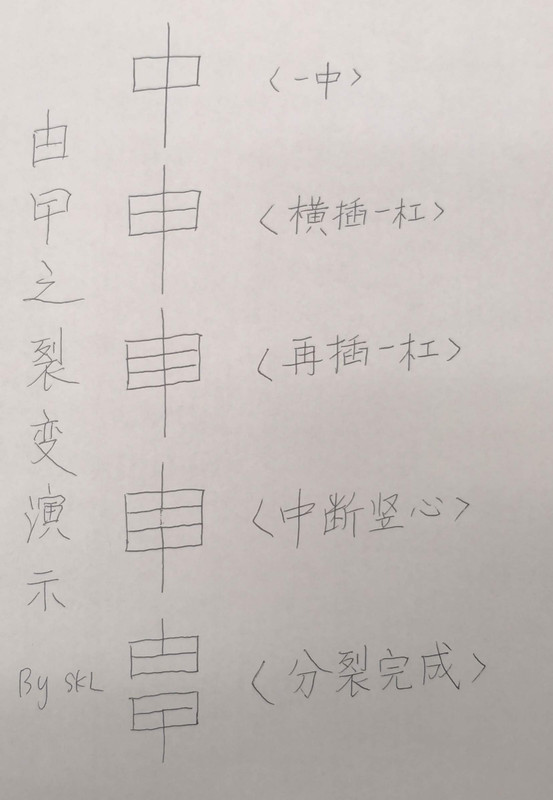 甴曱之裂变演示
By SKL
中 〈一中〉
申 〈横插一杠〉
〈再插一杠〉
〈中断竖心〉
甴
曱 〈分裂完成〉